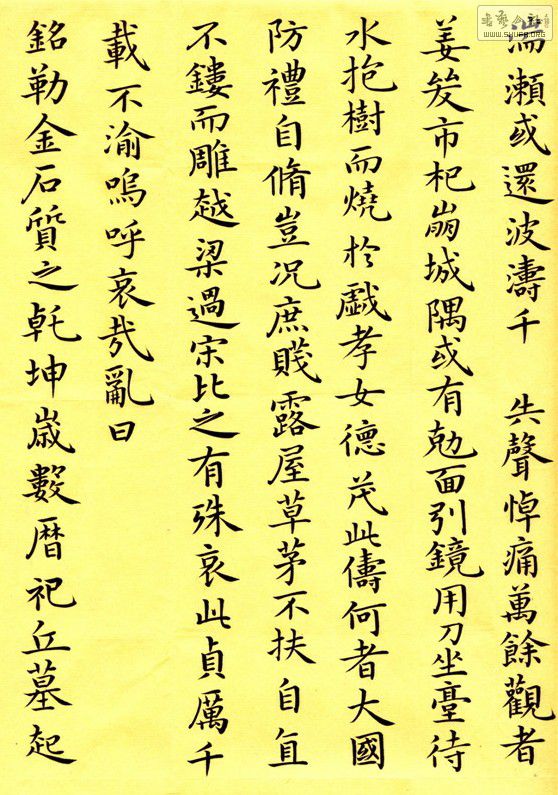 湍瀬或還波濤千 失聲悼痛萬餘觀者
姜哭市杞崩城隅或有勊面引鏡用刀坐臺待
水抱樹而燒於戯孝女德茂此儔何者大國
防禮自脩豈况庶賤露屋草茅不扶自直
不鏤而雕越梁過宋比之有殊哀此貞厲千
載不渝嗚呼哀哉亂曰
銘勒金石質之乾坤歲數曆祀丘墓起
WWW.SHUFA.ORG